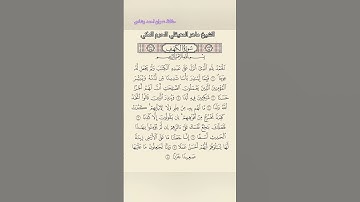 الشيخ ماهر المعيقلي الحرم المكي
سورة الكهف
بسم الله الرحمن الرحيم
الحمد لله الذي أنزل على عبده الكتاب ولم يجعل له
عوجا ١ قيما لينذر بأسا شديدا من لدنه ويبشر
المؤمنين الذين يعملون الصالحات أن لهم أجرا
حسنا ٢ ماكثين فيه أبدا ٣ وينذر الذين قالوا اتخذ
الله ولدا ٤ ما لهم به من علم ولا لآبائهم كبرت
كلمة تخرج من أفواههم إن يقولون إلا كذبا ٥
فلعلك باخع نفسك على آثارهم إن لم يؤمنوا بهذا
الحديث أسفا ٦ إنا جعلنا ما على الأرض زينة
لها لنبلوهم أيهم أحسن عملا ٧ وإنا لجاعلون ما عليها
صعيدا جرزا ٨